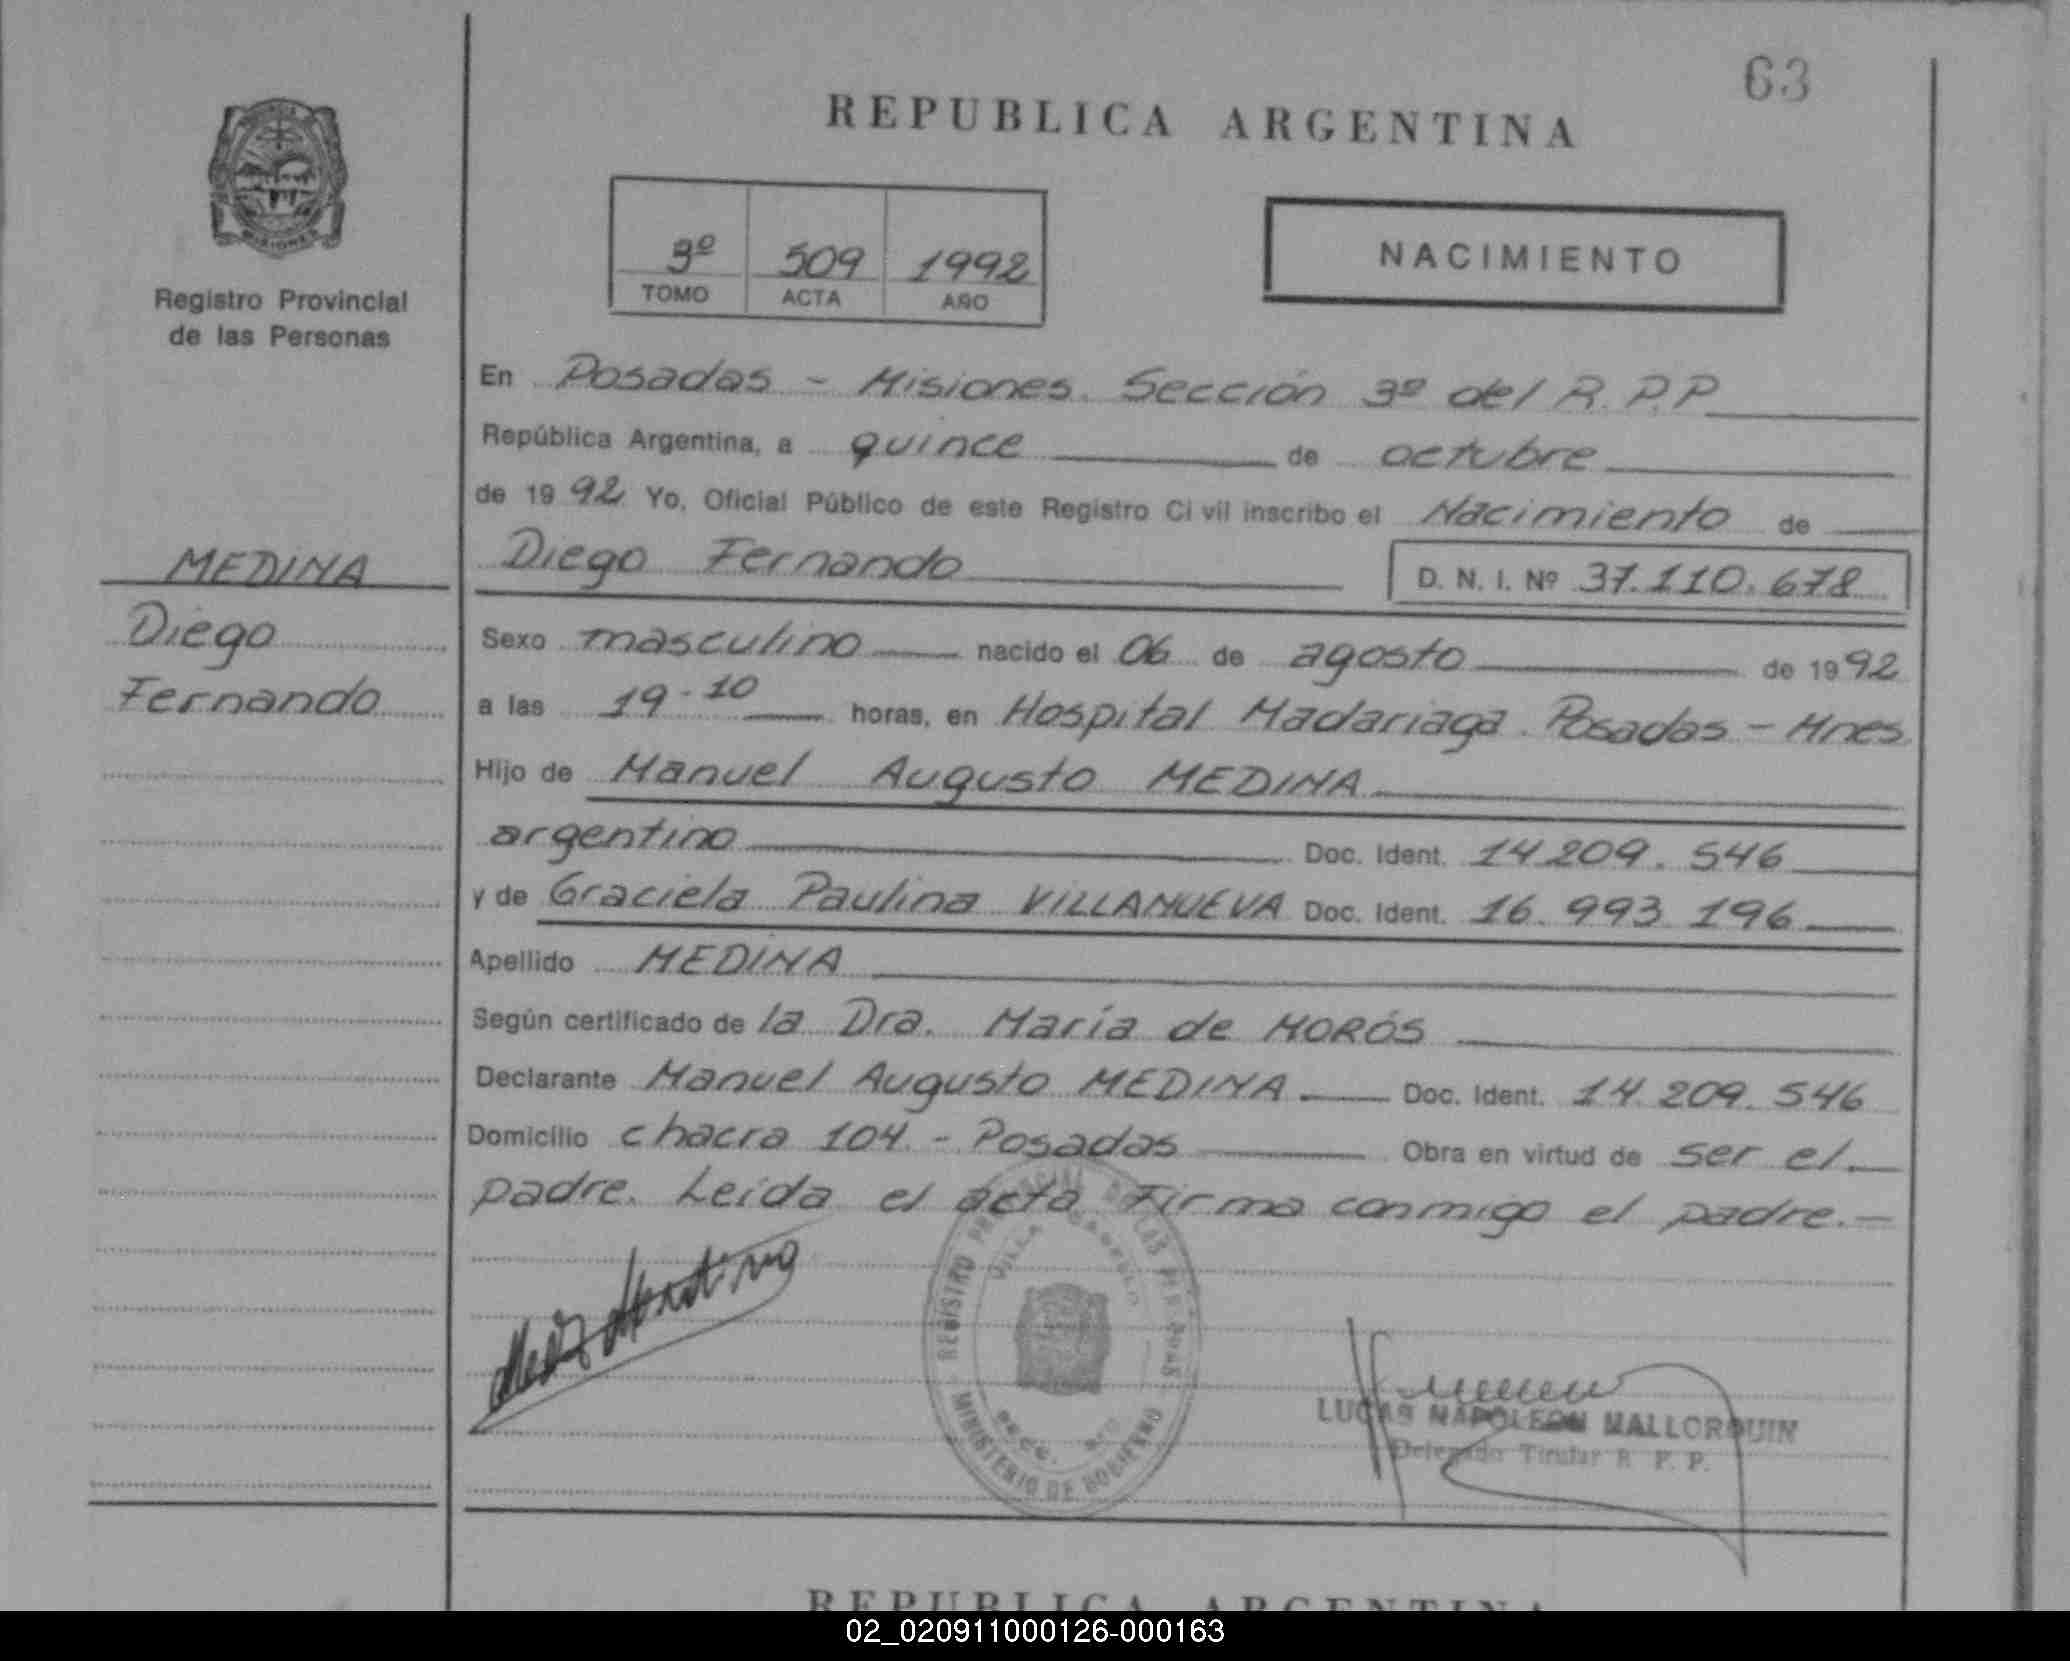 63
REPUBLICA ARGENTINA
MISIONES
Registro Provincial
de las Personas
3º 509 1992
TOMO ACTA AÑO
NACIMIENTO
En Posadas - Misiones. Sección 3º del R.P.P
República Argentina, a quince de octubre
de 1992 Yo, Oficial Público de este Registro Civil inscribo el Nacimiento de
Diego Fernando D. N. I. Nº 37.110.678
MEDINA
Diego
Fernando
Sexo masculino nacido el 06 de agosto de 1992
a las 19-10 horas, en Hospital Madariaga. Posadas - Mnes
Hijo de Manuel Augusto MEDINA
argentino Doc. Ident. 14.209.546
y de Graciela Paulina VILLANUEVA Doc. Ident. 16.993.196
Apellido MEDINA
Según certificado de la Dra. María de MORÓS
Declarante Manuel Augusto MEDINA Doc. Ident. 14.209.546
Domicilio chacra 104 - Posadas Obra en virtud de ser el
padre. Leída el acta Firma conmigo el padre.-
REGISTRO PROVINCIAL DE LAS PERSONAS
VILLA
MINISTERIO DE GOBIERNO
LUCAS NAPOLEON MALLORQUIN
Delegado Titular R. P. P.
REPUBLICA ARGENTINA
02_020911000126-000163